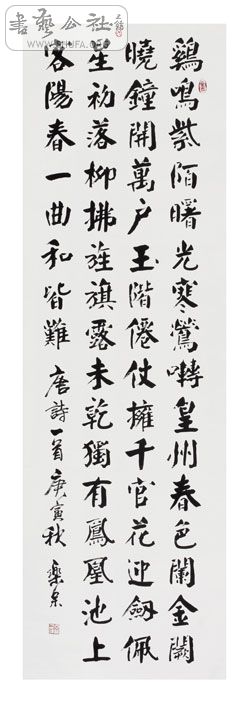 書藝公社
WWW.SHUFA.COM
鷄鳴紫陌曙光寒鶯囀皇州春色闌金闕
曉鐘開萬户玉階僊仗擁千官花迎劒佩
星初落柳拂旌旗露未乾獨有鳳凰池上
客陽春一曲和皆難 唐詩一首庚寅秋 樂泉